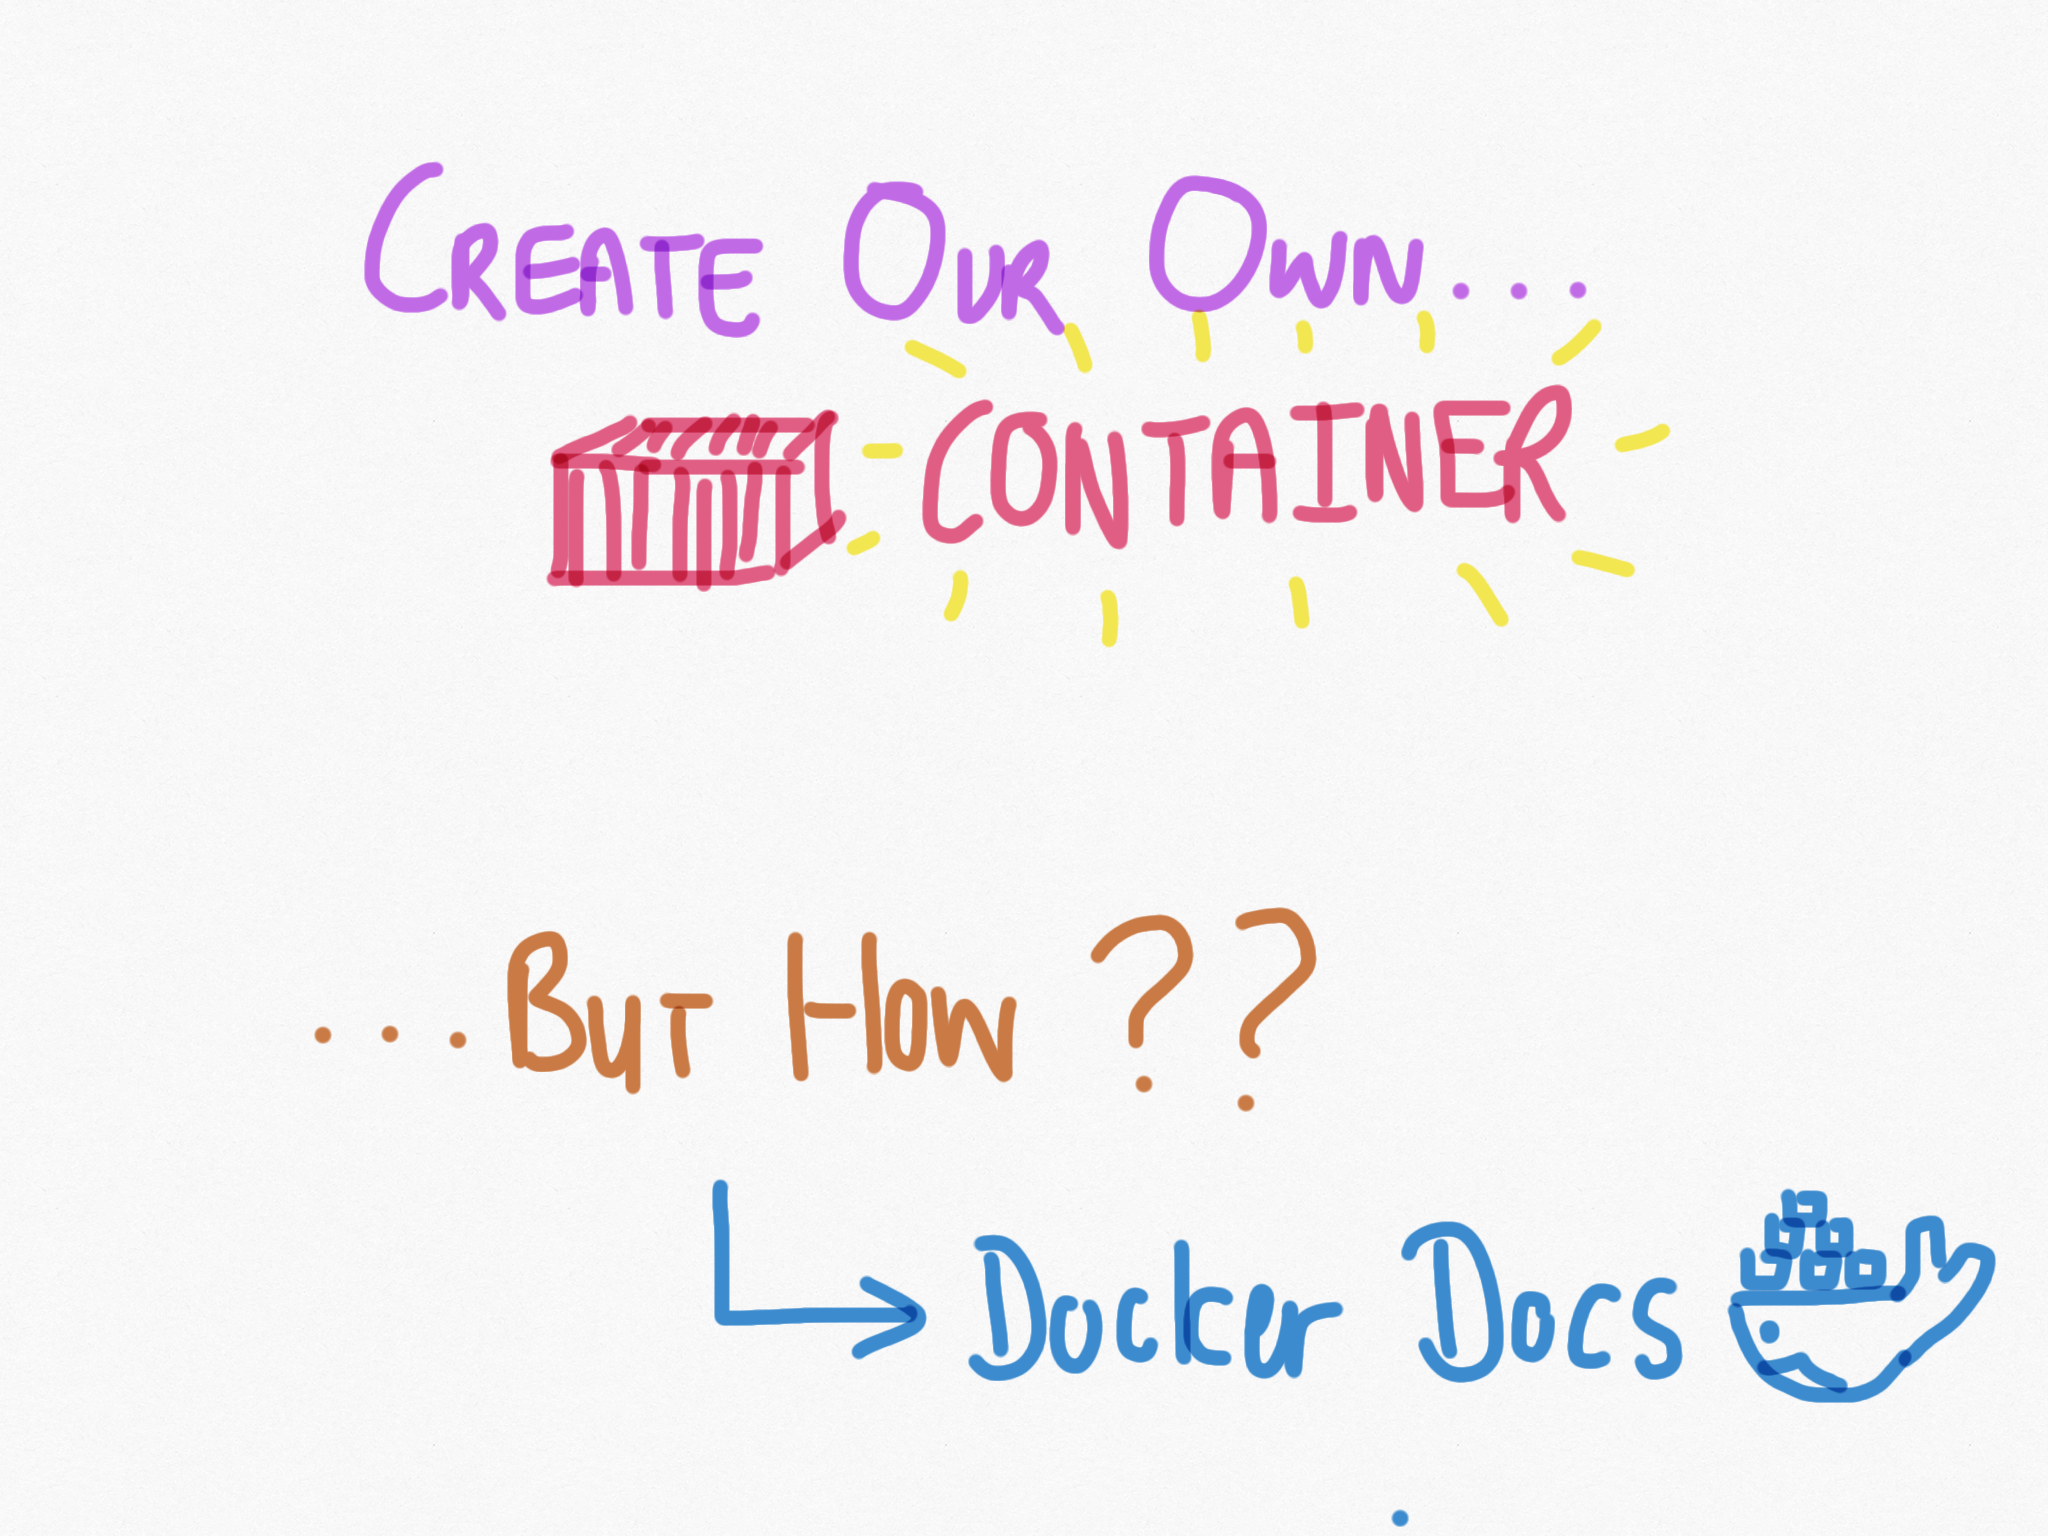 CREATE OUR OWN...
CONTAINER
...BUT HOW ??
Docker Docs